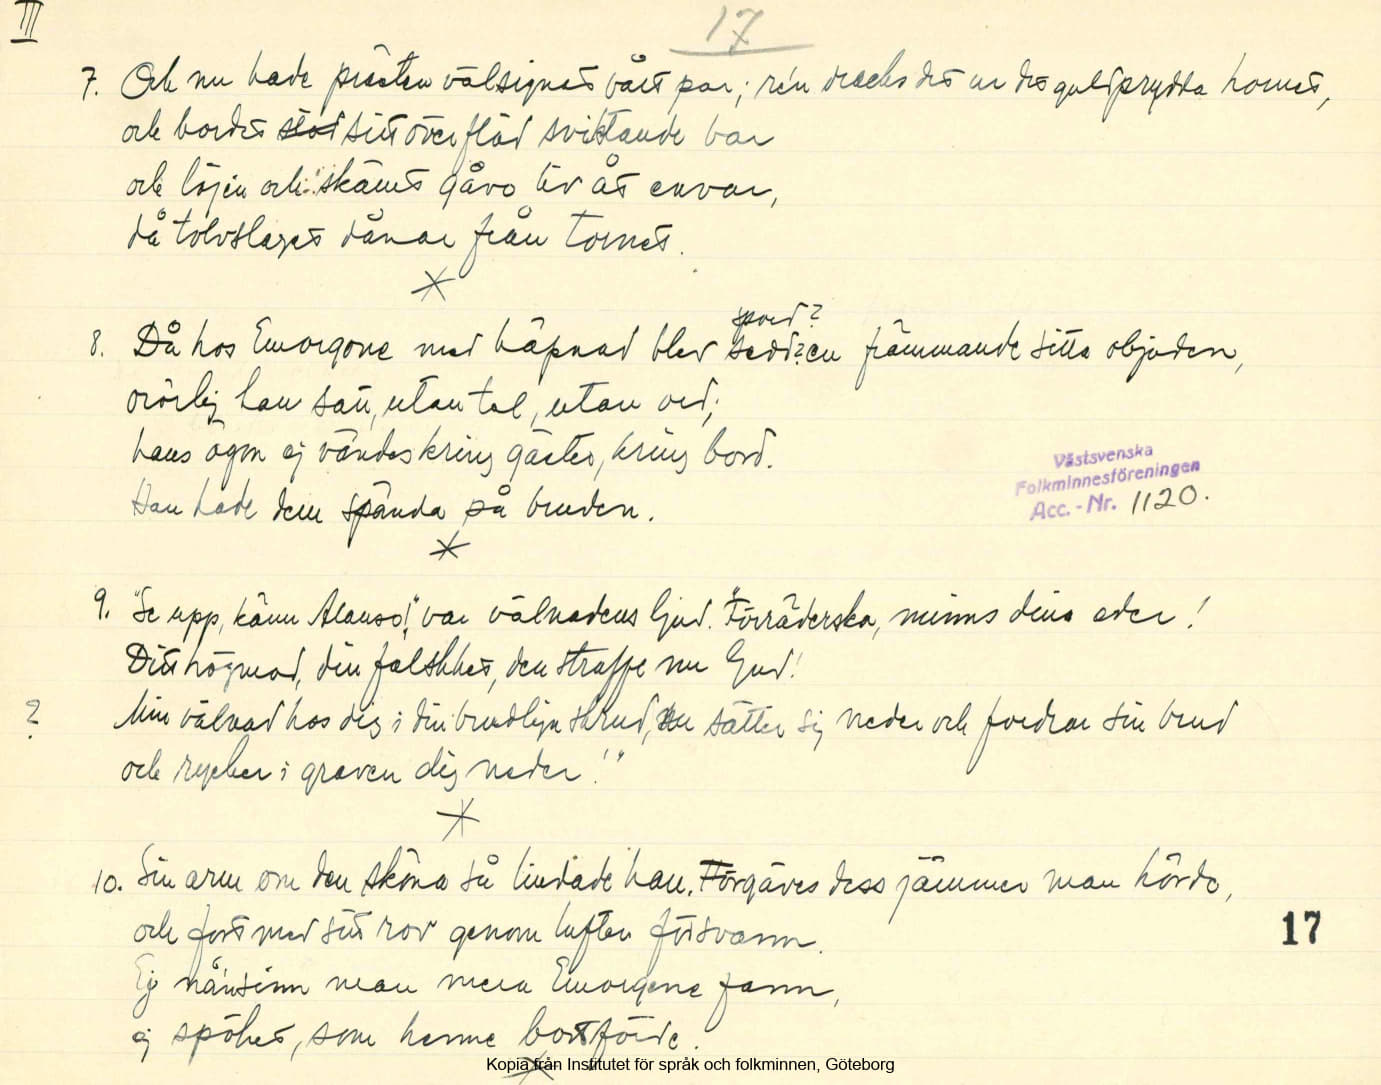 III
17
7. Och nu hade prästen välsignat vårt par; ren dracks det ur det guldprydda hornet,
och bordet stod sitt överflöd sviktande bar
och löjen och skämt gåvo liv åt envar,
då tolvslaget dånar från tornet.
spord?
8. Då hos Emorgone med häpnad blev sedd? en främmande sitta objuden,
orörlig han satt, utan tal, utan ord;
hans ögon ej vändes kring gäster, kring bord.
Han hade dem spända på bruden.
Västsvenska
Folkminnesföreningen
Acc.-Nr. 1120.
9. "Se upp, känn Alonso!", var vålnadens ljud. "Förräderska, minns dina eder!
Ditt högmod, din falskhet, den straffe nu Gud!
? Min vålnad hos dig i din brudliga skrud, nu sätter sig neder och fordrar sin brud
och rycker i graven dig neder!"
10. Sin arm om den sköna så lindade han. Förgäves dess jämmer man hörde,
och fort med sitt rov genom luften försvann.
17
Ej nånsinn man mera Emorgene fann,
ej spöket, som henne bortförde.
Kopia från Institutet för språk och folkminnen, Göteborg